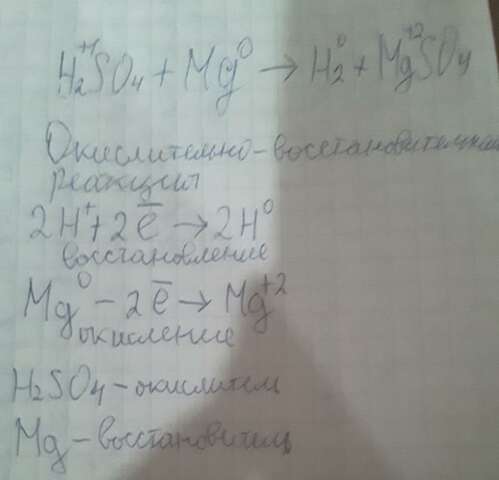 H₂⁺¹SO₄ + Mg⁰ → H₂⁰ + Mg⁺²SO₄
Окислительно-восстановительная
реакция
2H⁺ + 2ē → 2H⁰
восстановление
Mg⁰ - 2ē → Mg⁺²
окисление
H₂SO₄ - окислител
Mg - восстановитель